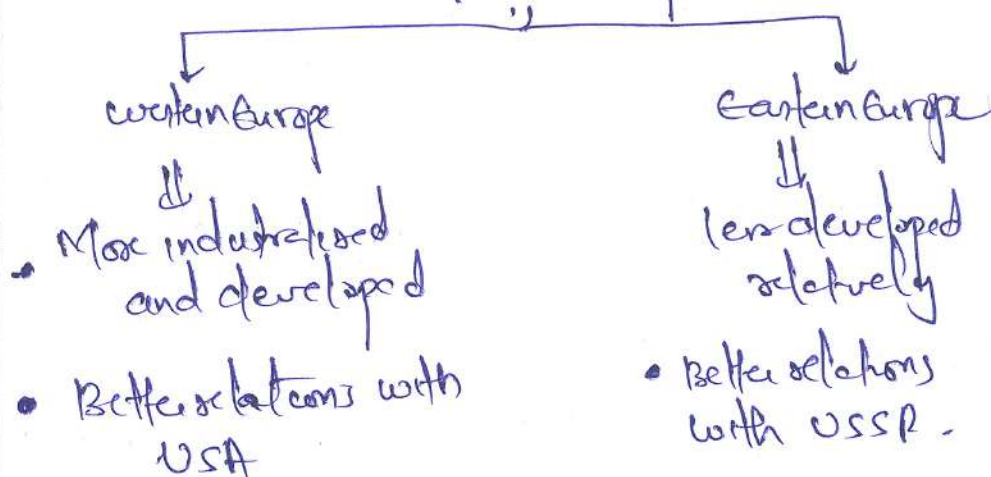 Western Europe
More industralised
and developed
• Better relations with
USA
Eastern Europe
less developed
relatively
• Better relations
with USSR.